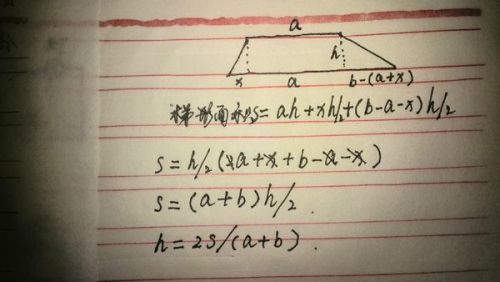 a
h
x a b-(a+x)
梯形面积S=ah+xh/2+(b-a-x)h/2
S=h/2(2a+x+b-a-x)
S=(a+b)h/2.
h=2S/(a+b).